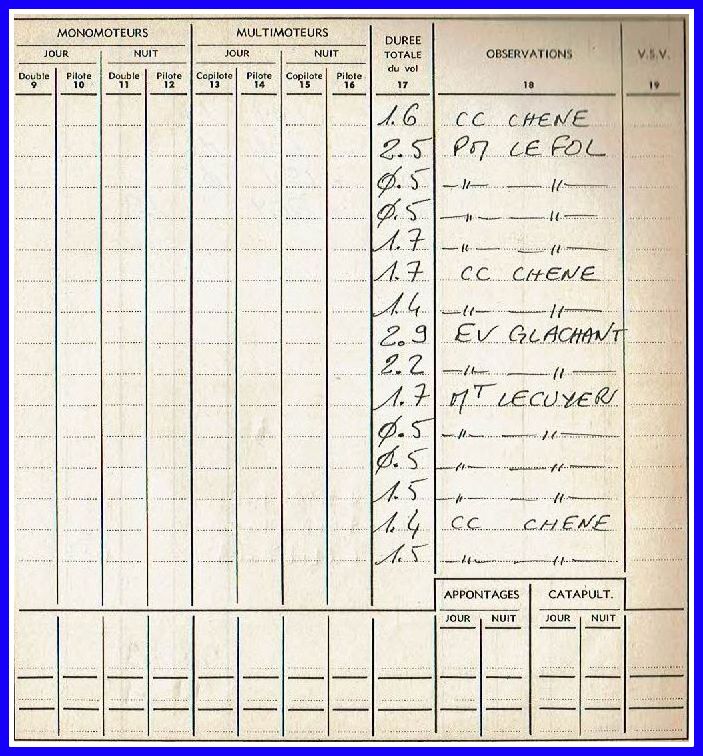 MONOMOTEURS MULTIMOTEURS DUREE TOTALE du vol OBSERVATIONS V.S.V.
JOUR NUIT JOUR NUIT
Double Pilote Double Pilote Copilote Pilote Copilote Pilote
9 10 11 12 13 14 15 16 17 18 19
1.6 CC CHENE
2.5 PM LE FOL
Ø.5 —"— —"—
Ø.5 —"— —"—
1.7 —"— —"—
1.7 CC CHENE
1.4 —"— —"—
2.9 EV GLACHANT
2.2 —"— —"—
1.7 MT LECUYER
Ø.5 —"— —"—
Ø.5 —"— —"—
1.5 —"— —"—
1.4 CC CHENE
1.5 —"— —"—
APPONTAGES CATAPULT.
JOUR NUIT JOUR NUIT